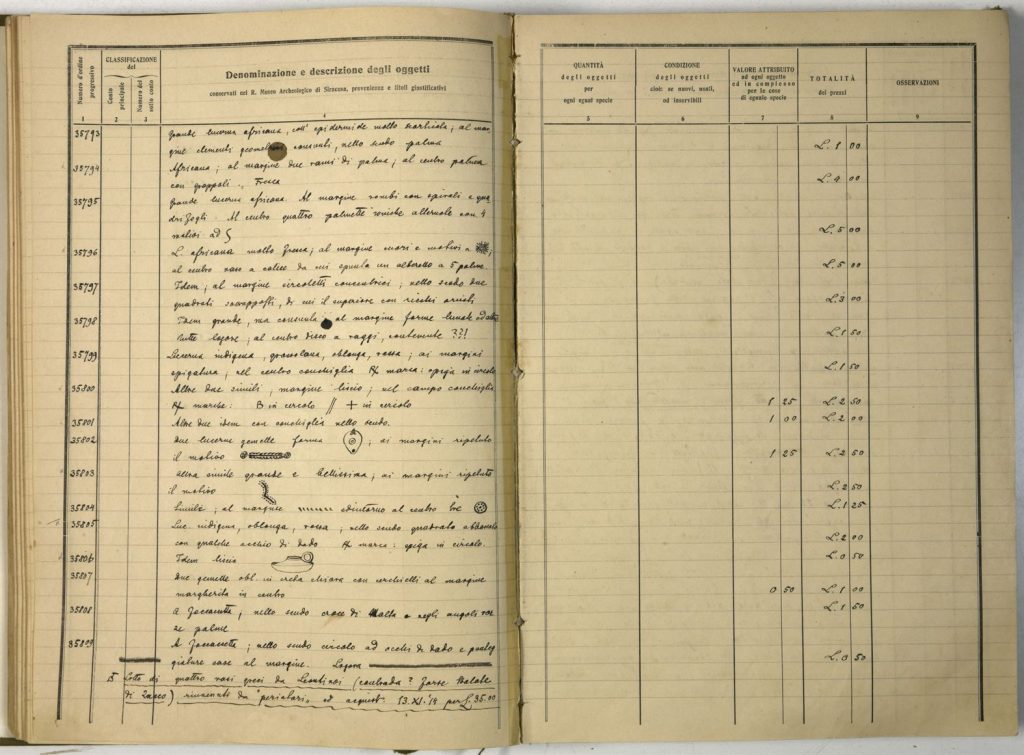 Numero d'ordine progressivo
CLASSIFICAZIONE
del
Conto principale
Numero del sotto conto
Denominazione e descrizione degli oggetti
conservati nel R. Museo Archeologico di Siracusa, provenienza e titoli giustificativi
1 2 3 4
35793 Grande lucerna africana, con epidermide molto scorticata; al mar
gine elementi geometrici consunti, nello scudo palma
35794 Africana; al margine due rami di palma; al centro palma
con grappoli. Fresca
35795 Grande lucerna africana. Al margine rombi con spirali e qua
drifogli. Al centro quattro palmette ioniche alternate con 4
motivi ad S
35796 L. africana molto fresca; al margine cuori e motivi a
al centro vaso a calice da cui spunta un alberetto a 5 palme.
35797 Idem; al margine circoletti concentrici; nello scudo due
quadrati sovrapposti, di cui il superiore con
35798 Idem grande, ma consunta; al margine forme lunate ed altre
tutte logore; al centro disco a raggi, contenente ??!
35799 Lucerna indigena, grossolana, oblonga, rossa; ai margini
spigatura, nel centro conchiglia marca: spiga in circolo
35800 Altre due simili, margine liscio; nel campo conchiglia
marche: B in circolo // + in circolo
35801 Altre due idem con conchiglia nello scudo.
35802 Due lucerne gemelle forma ; ai margini ripetuto
il motivo
35803 altra simile grande e bellissima; ai margini ripetuto
il motivo
35804 Simile; al margine edintorno al centro tre
35805 Luc. indigena, oblonga, rossa; nello scudo quadrato
con qualche occhio di dado marca: spiga in circolo.
35806 Idem liscia
35807 Due gemelle obl. in creta chiara con cerchielli al margine
margherita in centro
35808 A ; nello scudo croce di Malta e negli angoli roz
ze palme
35809 A ; nello scudo circolo ad occhi di dado e
giature rase al margine. Logora
Lotto di quattro vasi greci da Leontinoi (contrada ?
di Zacco) rinvenuti da "periclari" ed acquist. 13.XI.'14 per L. 35.00
QUANTITÀ
degli oggetti
per
ogni egual specie
CONDIZIONE
degli oggetti
cioè: se nuovi, usati,
od inservibili
VALORE ATTRIBUITO
ad ogni oggetto
ed in complesso
per le cose
di eguale specie
TOTALITÀ
dei prezzi
OSSERVAZIONI
5 6 7 8 9
L. 1 00
L. 4 00
L. 5 00
L. 5 00
L. 3 00
L. 1 50
L. 1 50
1 25 L. 2 50
1 00 L. 2 00
1 25 L. 2 50
L. 2 50
L. 1 25
L. 2 00
L. 0 50
0 50 L. 1 00
L. 1 50
L. 0 50